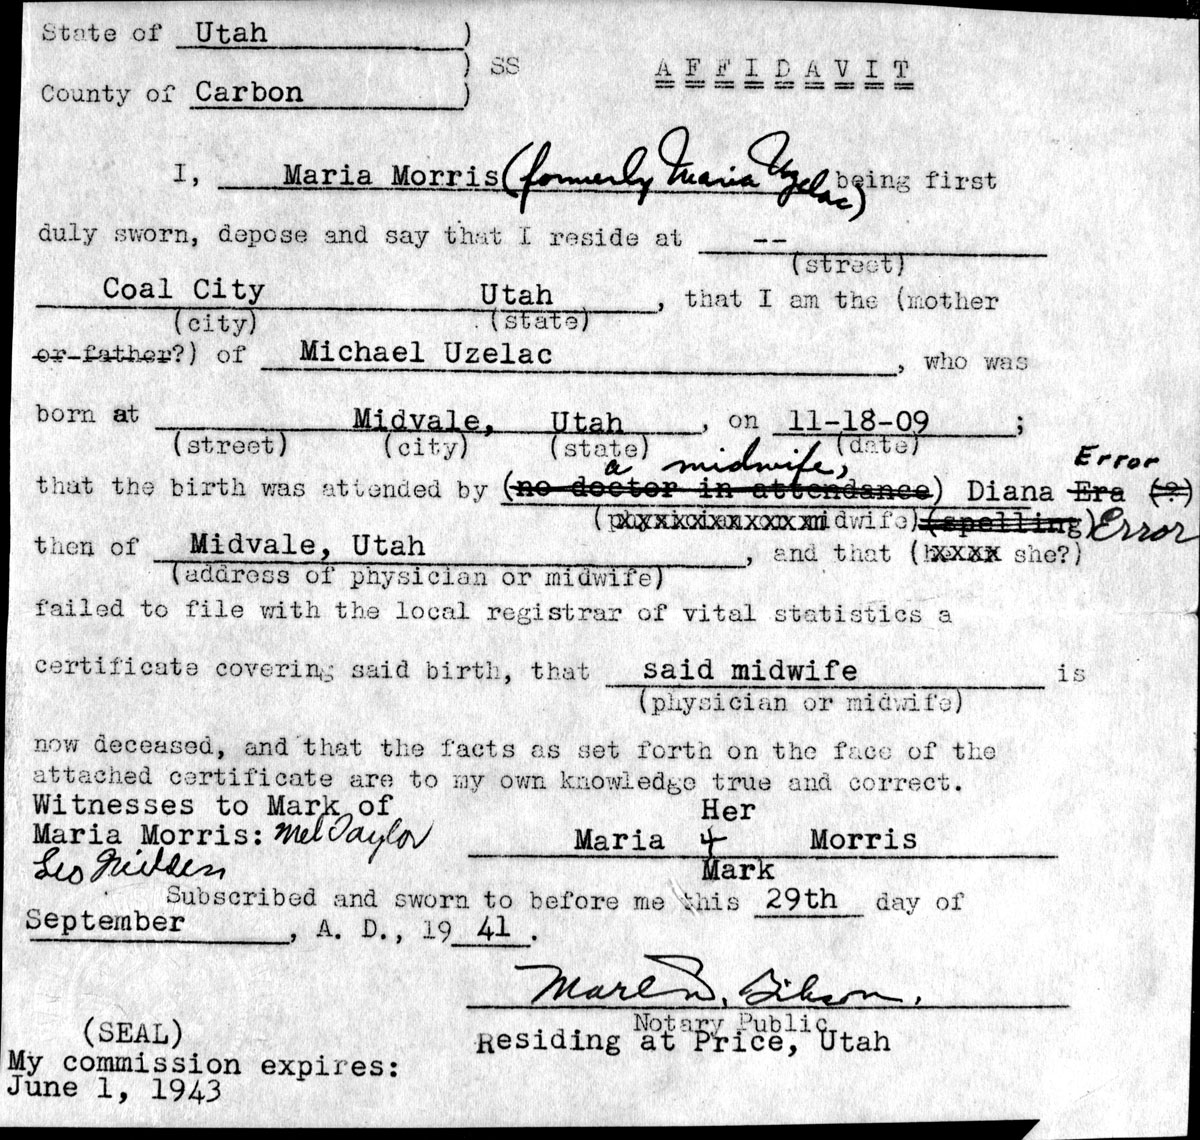 State of Utah )
) SS AFFIDAVIT
County of Carbon )
I, Maria Morris (formerly Maria Uzelac) being first
duly sworn, depose and say that I reside at --
(street)
Coal City Utah , that I am the (mother
(city) (state)
or father?) of Michael Uzelac , who was
born at Midvale, Utah , on 11-18-09 ;
(street) (city) (state) (date)
a midwife, Error
that the birth was attended by (no doctor in attendance) Diana Era (?)
midwife) (spelling) Error
then of Midvale, Utah , and that ( she?)
(address of physician or midwife)
failed to file with the local registrar of vital statistics a
certificate covering said birth, that said midwife is
(physician or midwife)
now deceased, and that the facts as set forth on the face of the
attached certificate are to my own knowledge true and correct.
Witnesses to Mark of Her
Maria Morris: Mel Taylor Maria + Morris
Leo Mark
Subscribed and sworn to before me this 29th day of
September , A. D., 19 41 .
Gibson.
Notary Public
(SEAL) Residing at Price, Utah
My commission expires:
June 1, 1943